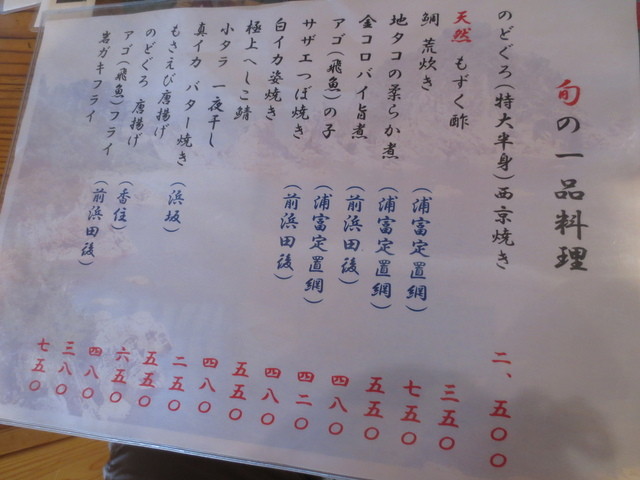 旬の一品料理
のどぐろ(特大半身)西京焼き 二、五〇〇
天然 もずく酢 三五〇
鯛 荒炊き (浦富定置網) 七五〇
地タコの柔らか煮 (浦富定置網) 五五〇
金コロバイ旨煮 (前浜田後) 四八〇
アゴ(飛魚)の子 (浦富定置網) 四二〇
サザエつぼ焼き (前浜田後) 四八〇
白イカ姿焼き 五五〇
極上へしこ鯖 四八〇
小タラ 一夜干し 二五〇
真イカ バター焼き 五五〇
もさえび唐揚げ (浜坂) 六五〇
のどぐろ 唐揚げ 四八〇
アゴ(飛魚)フライ (香住) 三八〇
岩ガキフライ (前浜田後) 七五〇